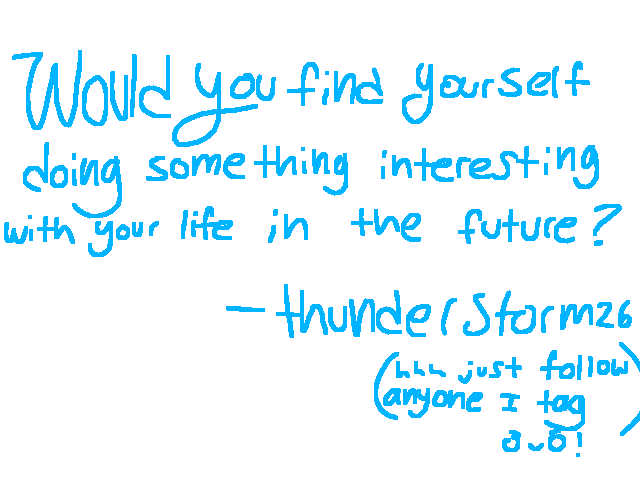 Would you find yourself
doing something interesting
with your life in the future?
- thunderstorm26
(hhh just follow
anyone I tag
o~o!)